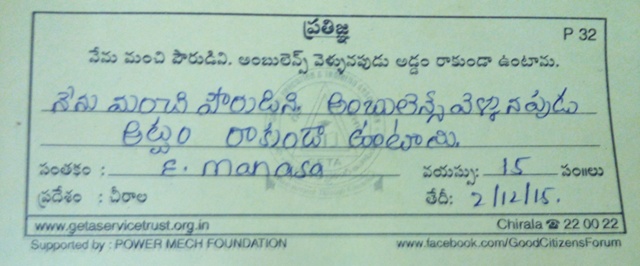 ప్రతిజ్ఞ
P 32
నేను మంచి పౌరుడిని. అంబులెన్స్ వెళ్ళునపుడు అడ్డం రాకుండా ఉంటాను.
నేను మంచి పౌరుడిని. అంబులెన్స్ వెళ్ళునపుడు
అడ్డం రాకుండా ఉంటాను.
సంతకం : E. Manasa వయస్సు: 15 సం॥లు
ప్రదేశం : చీరాల తేదీ: 2/12/15.
www.getaservicetrust.org.in Chirala ☎ 22 00 22
Supported by : POWER MECH FOUNDATION www.facebook.com/GoodCitizensForum